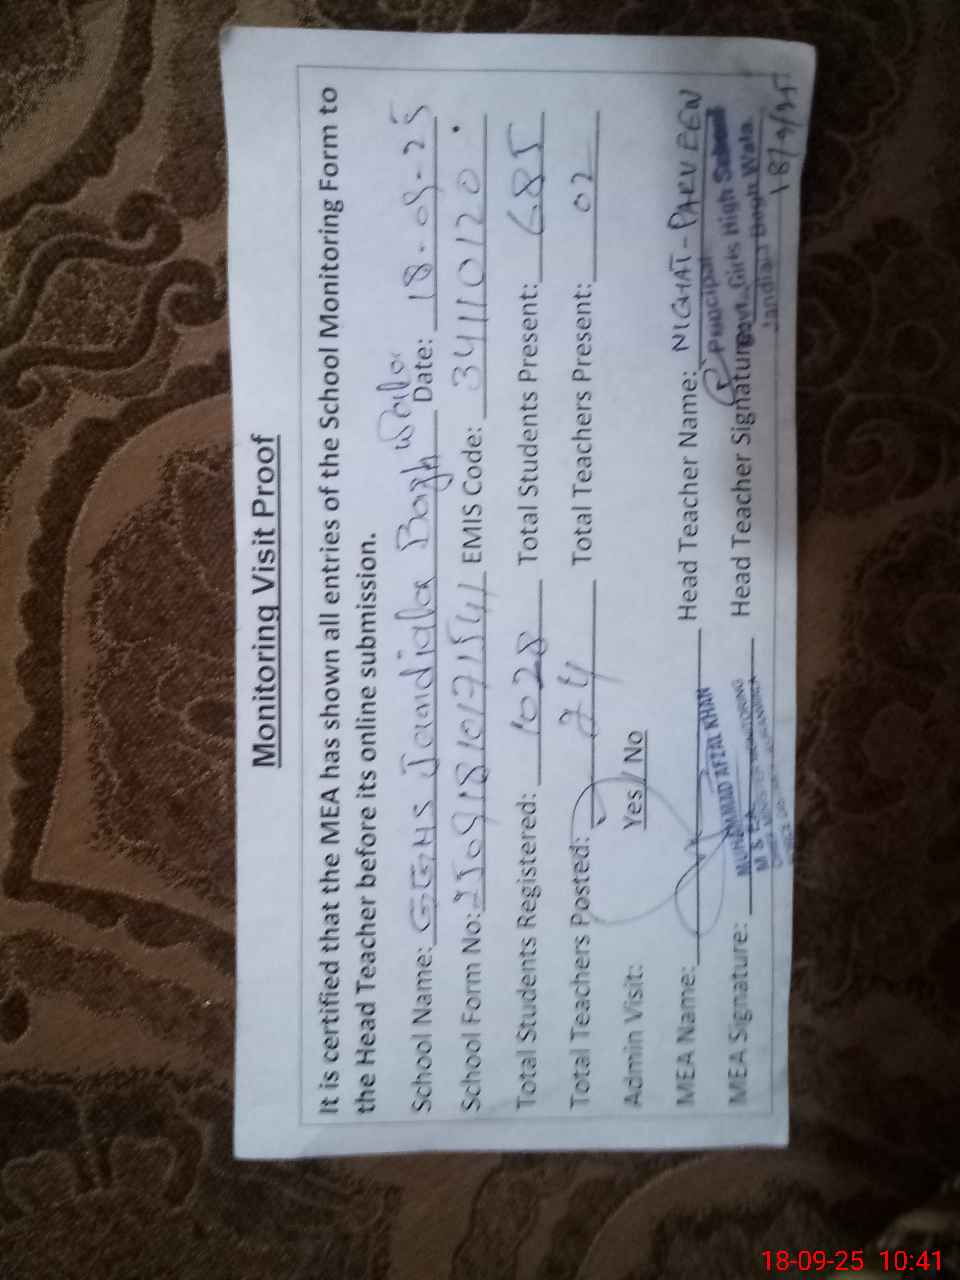 Monitoring Visit Proof
It is certified that the MEA has shown all entries of the School Monitoring Form to
the Head Teacher before its online submission.
School Name: GGHS Jandiala Bagh Wala Date: 18-09-25
School Form No: 25091810171541 EMIS Code: 34110120
Total Students Registered: 1028 Total Students Present: 685
Total Teachers Posted: 24 Total Teachers Present: 02
Admin Visit: Yes / No
MEA Name: MUHAMMAD AFZAL KHAN Head Teacher Name: NIGHAT-PARVEEN
MEA Signature: Head Teacher Signature:
M & EA
MONITORING
Principal
Govt. Girls High School
Jandiala Bagh Wala.
18/9/25
18-09-25 10:41